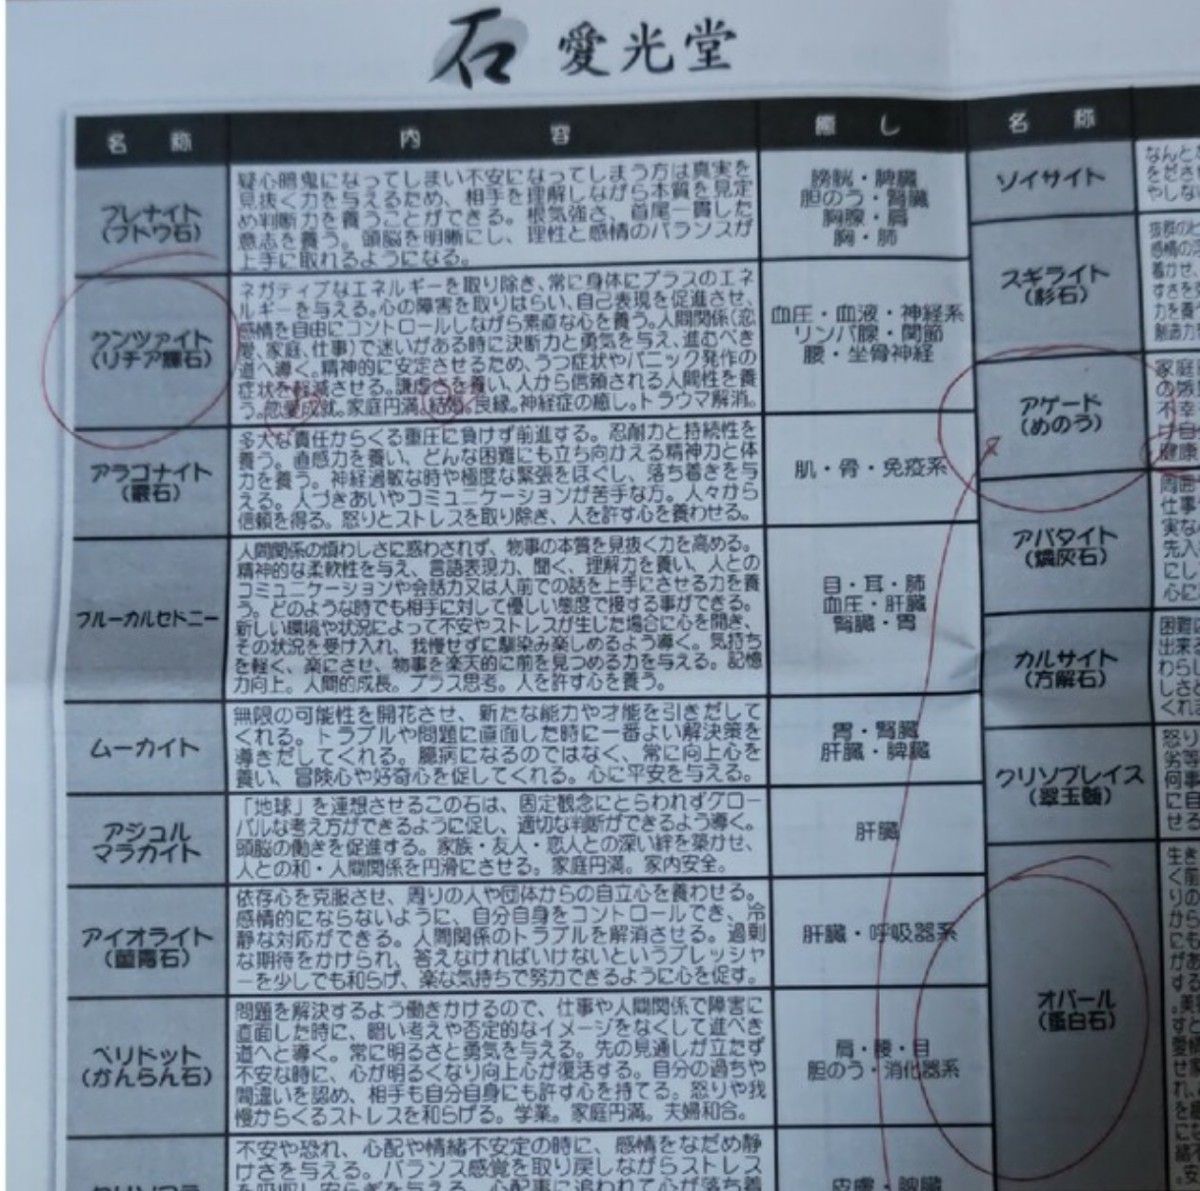 石 愛光堂
名称 内容 癒し
プレナイト
(ブドウ石)
疑心暗鬼になってしまい不安になってしまう方は真実を
見抜く力を与えるため、相手を理解しながら本質を見定
め判断力を養うことができる。根気強さ、首尾一貫した
意志を養う。頭脳を明晰にし、理性と感情のバランスが
上手に取れるようになる。
膀胱・脾臓
胆のう・腎臓
胸腺・肩
胸・肺
クンツァイト
(リチア輝石)
ネガティブなエネルギーを取り除き、常に身体にプラスのエネ
ルギーを与える。心の障害を取りはらい、自己表現を促進させ、
感情を自由にコントロールしながら素直な心を養う。人間関係(恋
愛、家庭、仕事)で迷いがある時に決断力と勇気を与え、進むべき
道へ導く。精神的に安定させるため、うつ症状やパニック発作の
症状を軽減させる。謙虚さを養い、人から信頼される人間性を養
う。恋愛成就。家庭円満。結婚。良縁。神経症の癒し。トラウマ解消。
血圧・血液・神経系
リンパ腺・関節
腰・坐骨神経
アラゴナイト
(霰石)
多大な責任からくる重圧に負けず前進する。忍耐力と持続性を
養う。直感力を養い、どんな困難にも立ち向かえる精神力と体
力を養う。神経過敏な時や極度な緊張をほぐし、落ち着きを与
える。人づきあいやコミュニケーションが苦手な方。人々から
信頼を得る。怒りとストレスを取り除き、人を許す心を養わせる。
肌・骨・免疫系
ブルーカルセドニー
人間関係の煩わしさに惑わされず、物事の本質を見抜く力を高める。
精神的な柔軟性を与え、言語表現力、聞く、理解力を養い、人との
コミュニケーションや会話力又は人前での話を上手にさせる力を養
う。どのような時でも相手に対して優しい態度で接する事ができる。
新しい環境や状況によって不安やストレスが生じた場合に心を開き、
その状況を受け入れ、我慢せずに馴染み楽しめるよう導く。気持ち
を軽く、楽にさせ、物事を楽天的に前を見つめる力を与える。記憶
力向上。人間的成長。プラス思考。人を許す心を養う。
目・耳・肺
血圧・肝臓
腎臓・胃
ムーカイト
無限の可能性を開花させ、新たな能力や才能を引きだして
くれる。トラブルや問題に直面した時に一番よい解決策を
導きだしてくれる。臆病になるのではなく、常に向上心を
養い、冒険心や好奇心を促してくれる。心に平安を与える。
胃・腎臓
肝臓・脾臓
アジュル
マラカイト
「地球」を連想させるこの石は、固定観念にとらわれずグロー
バルな考え方ができるように促し、適切な判断ができるよう導く。
頭脳の働きを促進する。家族・友人・恋人との深い絆を築かせ、
人との和・人間関係を円滑にさせる。家庭円満。家内安全。
肝臓
アイオライト
(菫青石)
依存心を克服させ、周りの人や団体からの自立心を養わせる。
感情的にならないように、自分自身をコントロールでき、冷
静な対応ができる。人間関係のトラブルを解消させる。過剰
な期待をかけられ、答えなければいけないというプレッシャ
ーを少しでも和らげ、楽な気持ちで努力できるように心を促す。
肝臓・呼吸器系
ペリドット
(かんらん石)
問題を解決するよう働きかけるので、仕事や人間関係で障害に
直面した時に、暗い考えや否定的なイメージをなくして進べき
道へと導く。常に明るさと勇気を与える。先の見通しが立たず
不安な時に、心が明るくなり向上心が復活する。自分の過ちや
間違いを認め、相手も自分自身にも許す心を持てる。怒りや我
慢からくるストレスを和らげる。学業。家庭円満。夫婦和合。
肩・腰・目
胆のう・消化器系
不安や恐れ、心配や情緒不安定の時に、感情をなだめ静
けさを与える。バランス感覚を取り戻しながらストレス
皮膚・脾臓
名称
ソイサイト
なんと
をださ
やしな
スギライト
(杉石)
感情の
着かせ、
すさを
力を養
アゲード
(めのう)
家庭
の嫉
不幸
け自
健康
アパタイト
(燐灰石)
周囲
仕事
実な
先入
にし
心に
カルサイト
(方解石)
困難
出来る
わらし
しさと
くれ
クリソプレイス
(翠玉髄)
怒り
劣等
何事
に自
せる
オパール
(蛋白石)
生き
く前
りの
から
にそ
があ
する